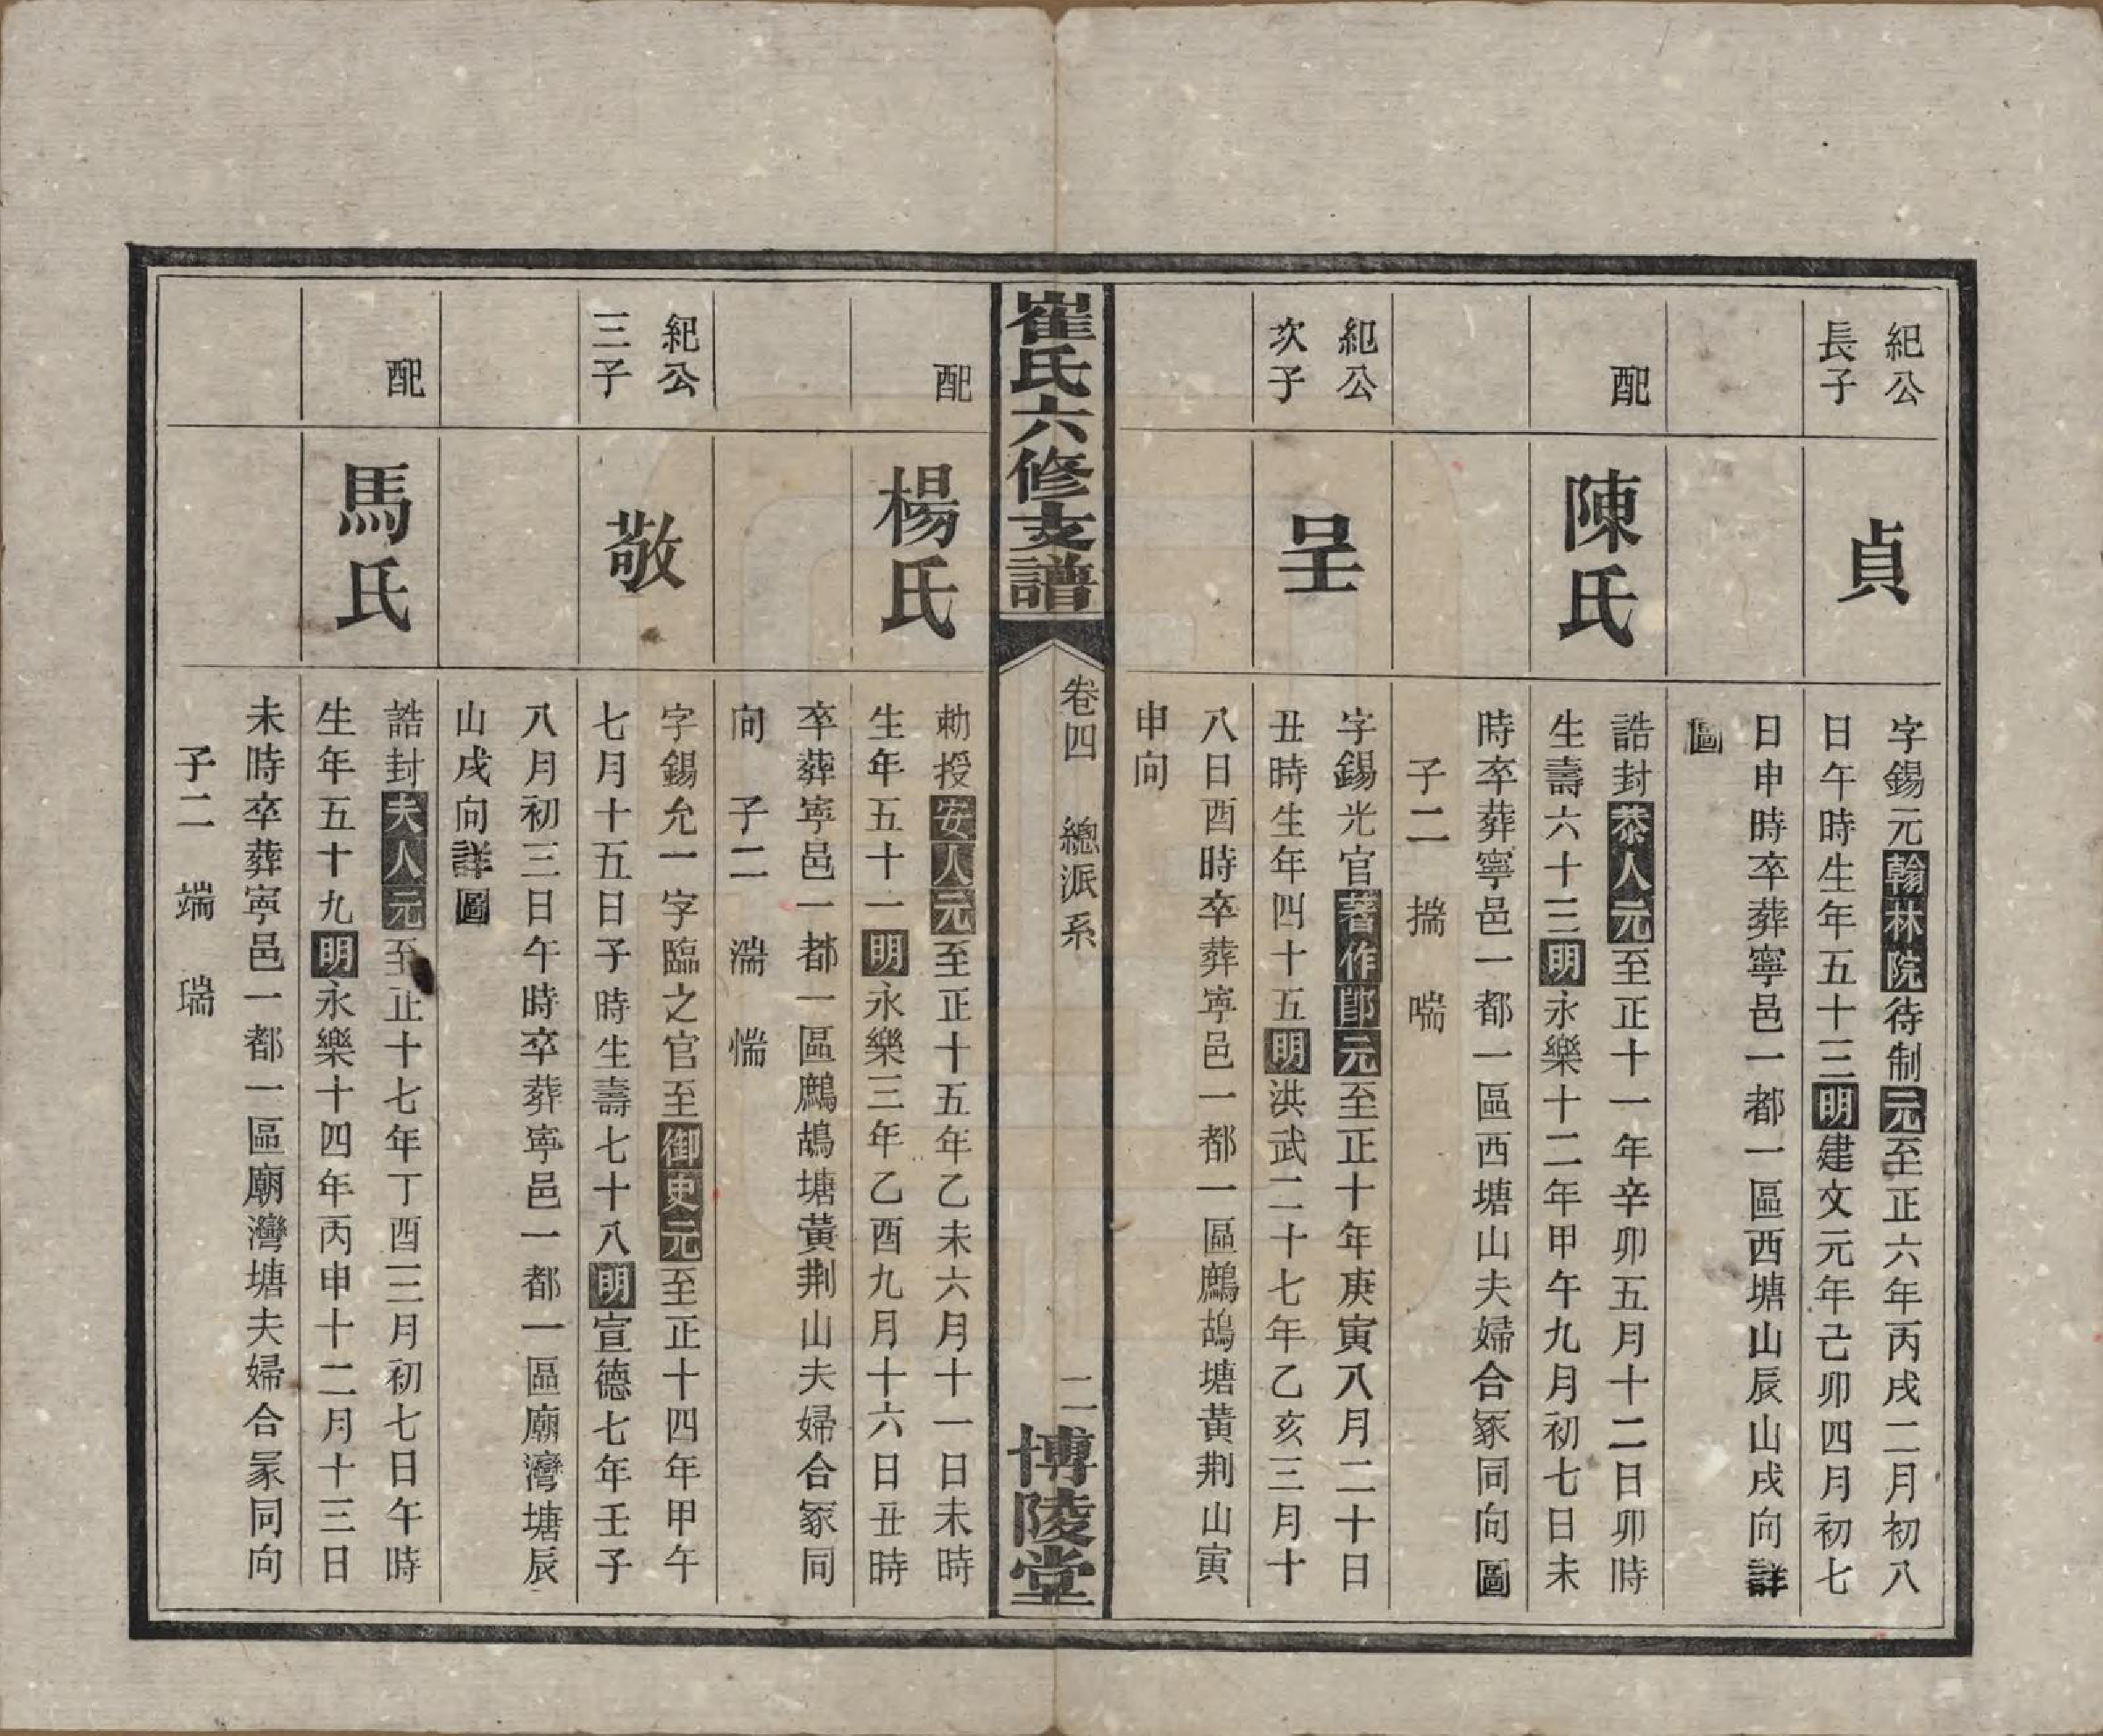 紀公
長子
貞
字錫元翰林院待制元至正六年丙戌二月初八
日午時生年五十三明建文元年己卯四月初七
日申時卒葬寧邑一都一區西塘山辰山戌向詳
圖
配
陳氏
誥封恭人元至正十一年辛卯五月十二日卯時
生壽六十三明永樂十二年甲午九月初七日未
時卒葬寧邑一都一區西塘山夫婦合冢同向圖
子二　揣　喘
紀公
次子
呈
字錫光官著作郎元至正十年庚寅八月二十日
丑時生年四十五明洪武二十七年乙亥三月十
八日酉時卒葬寧邑一都一區鷓鴣塘黃荆山寅
申向
崔氏六修支譜
卷四　總派系
二
博陵堂
配
楊氏
勅授安人元至正十五年乙未六月十一日未時
生年五十一明永樂三年乙酉九月十六日丑時
卒葬寧邑一都一區鷓鴣塘黃荆山夫婦合冢同
向　子二　湍　惴
紀公
三子
敬
字錫允一字臨之官至御史元至正十四年甲午
七月十五日子時生壽七十八明宣德七年壬子
八月初三日午時卒葬寧邑一都一區廟灣塘辰
山戌向詳圖
配
馬氏
誥封夫人元至正十七年丁酉三月初七日午時
生年五十九明永樂十四年丙申十二月十三日
未時卒葬寧邑一都一區廟灣塘夫婦合冢同向
子二　端　瑞